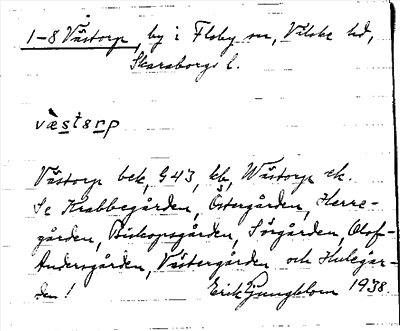 1-8 Västorp, by i Floby sn, Vilske hd,
Skaraborgs l.
væstərp
Västorp bek, G43, kb, Wästorp ek.
Se Krabbegården, Östergården, Herre-
gården, Biskopsgården, Sörgården, Olof-
Andersgården, Västergården och Hulegår-
den! Erik Ljungblom 1938.